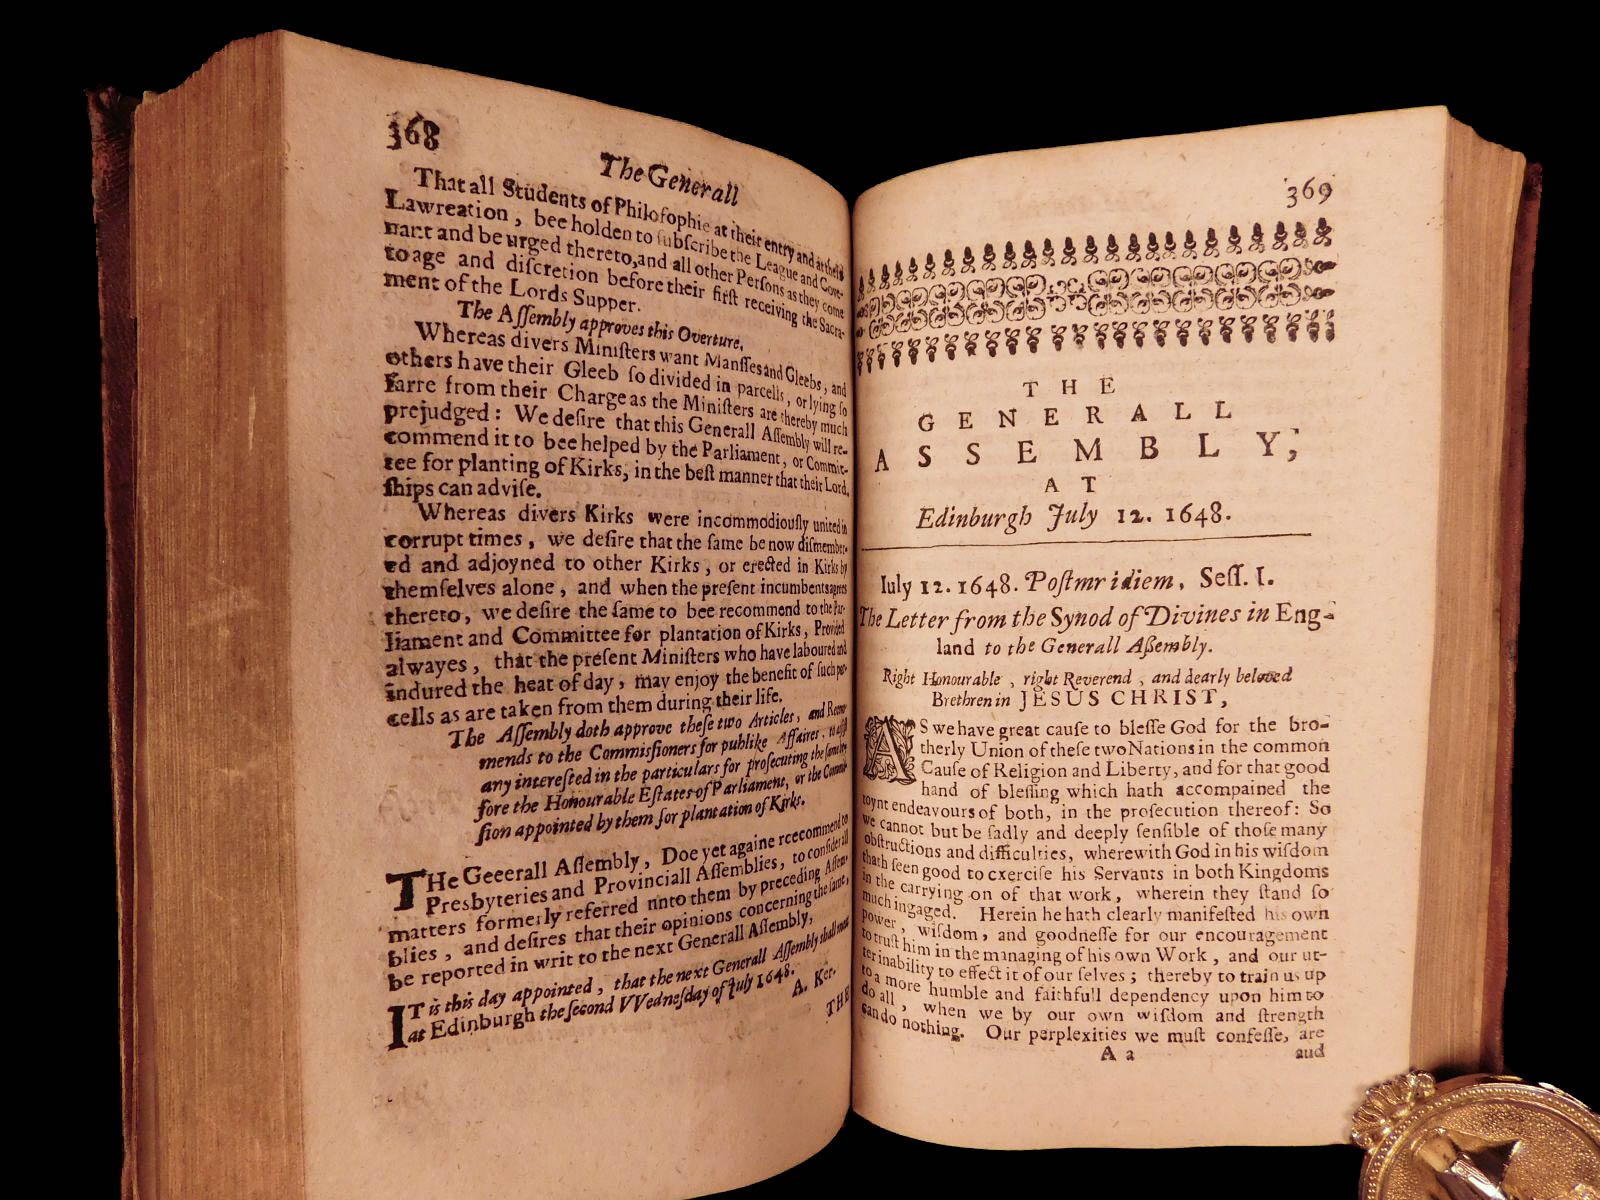 368
The Generall
That all Students of Philosophie at their entry and at their
Lawreation, bee holden to subscribe the League and Cove-
nant and be urged thereto, and all other Persons as they come
to age and discretion before their first receiving the Sacra-
ment of the Lords Supper.
The Assembly approves this Overture.
Whereas divers Ministers want Mansses and Gleebs, and
others have their Gleeb so divided in parcells, or lying so
farre from their Charge as the Ministers are thereby much
prejudged: We desire that this Generall Assembly will re-
commend it to bee helped by the Parliament, or Commit-
tee for planting of Kirks, in the best manner that their Lord.
ships can advise.
Whereas divers Kirks were incommodiously united in
corrupt times, we desire that the same be now dismember-
ed and adjoyned to other Kirks, or erected in Kirks by
themselves alone, and when the present incumbents agree
thereto, we desire the same to bee recommend to the Par-
liament and Committee for plantation of Kirks, Provided
alwayes, that the present Ministers who have laboured and
indured the heat of day, may enjoy the benefit of such par-
cells as are taken from them during their life.
The Assembly doth approve these two Articles, and Recom-
mends to the Commissioners for publike Affaires, to assist
any interested in the particulars for prosecuting the same be-
fore the Honourable Estates of Parliament, or the Commis-
sion appointed by them for plantation of Kirks.
THe Geeerall Assembly, Doe yet againe rcecommend to
Presbyteries and Provinciall Assemblies, to consider all
matters formerly referred nnto them by preceding Assem-
blies, and desires that their opinions concerning the same,
be reported in writ to the next Generall Assembly,
IT is this day appointed, that the next Generall Assembly shall meet
at Edinburgh the second VVednesday of July 1648.
A. Ker.
THE
369
THE
GENERALL
ASSEMBLY,
AT
Edinburgh July 12. 1648.
Iuly 12. 1648. Postmr idiem, Sess. I.
The Letter from the Synod of Divines in Eng-
land to the Generall Assembly.
Right Honourable, right Reverend, and dearly beloved
Brethren in JESUS CHRIST,
AS we have great cause to blesse God for the bro-
therly Union of these two Nations in the common
Cause of Religion and Liberty, and for that good
hand of blessing which hath accompained the
joynt endeavours of both, in the prosecution thereof: So
we cannot but be sadly and deeply sensible of those many
obstructions and difficulties, wherewith God in his wisdom
hath seen good to exercise his Servants in both Kingdoms
in the carrying on of that work, wherein they stand so
much ingaged. Herein he hath clearly manifested his own
power, wisdom, and goodnesse for our encouragement
to trust him in the managing of his own Work, and our ut-
ter inability to effect it of our selves; thereby to train us up
to a more humble and faithfull dependency upon him to
do all, when we by our own wisdom and strength
can do nothing. Our perplexities we must confesse, are
A a
aud